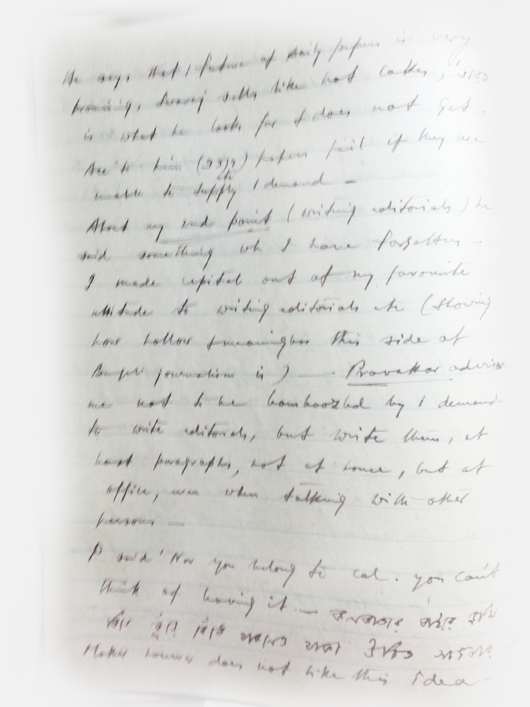 He says, that / future of daily papers is very
promising, Swaraj sells like hot cakes,
is what he looks for & does not get.
Acc to him papers fail if they are
unable to supply / demand —
About my end point (writing editorials) he
said something wh I have forgotten.
I made capital out of my favourite
attitude to writing editorials etc (showing
how hollow & meaningless this side of
Bengali journalism is) — Provakar advises
me not to be bamboozled by / demand
to write editorials, but write them, at
least paragraphs, not at home, but at
office, even when talking with other
persons —
P said 'Now you belong to Cal. you can't
think of leaving it —
however does not like this idea